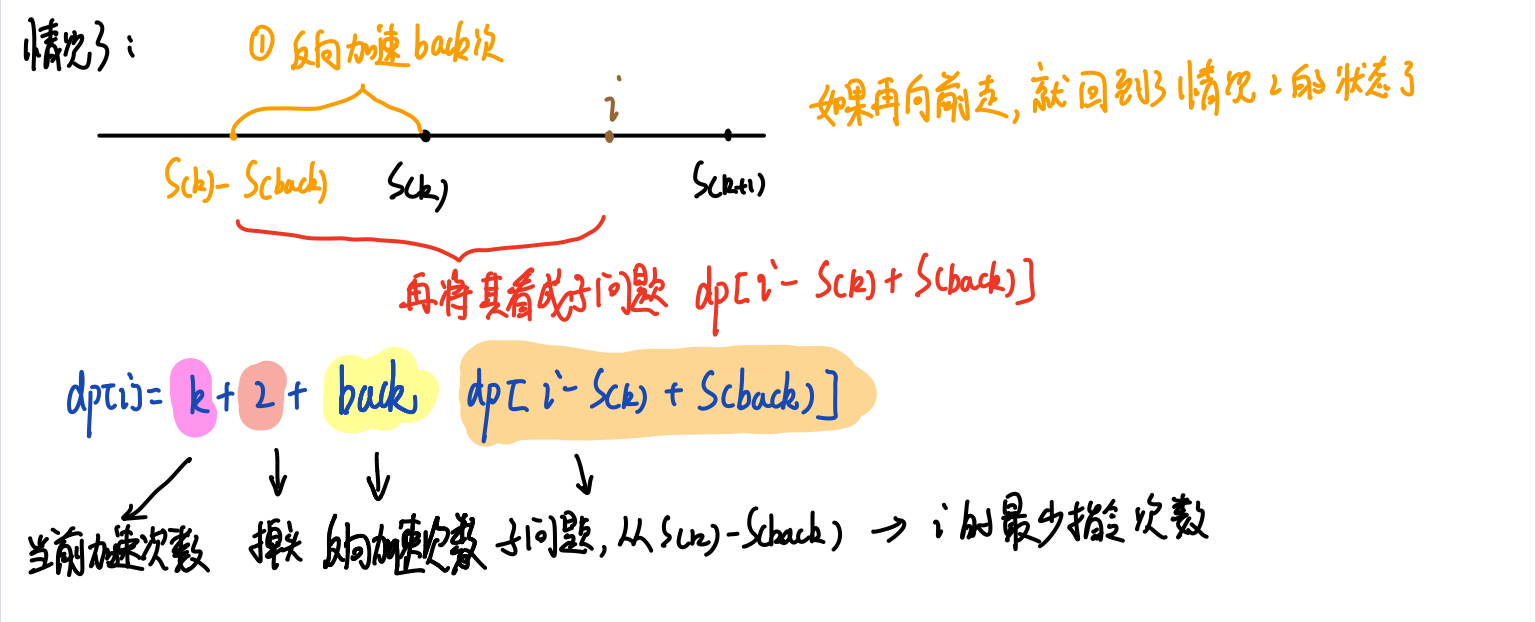 情况3：
① 反向加速back次
i
如果再向前走，就回到了情况2的状态了
S(k)-S(back)
S(k)
S(k+1)
再将其看成子问题 dp[i-S(k)+S(back)]
dp[i]=k+2+back dp[i-S(k)+S(back)]
当前加速次数
掉头
反向加速次数
子问题，从S(k)-S(back)→i的最少指令次数